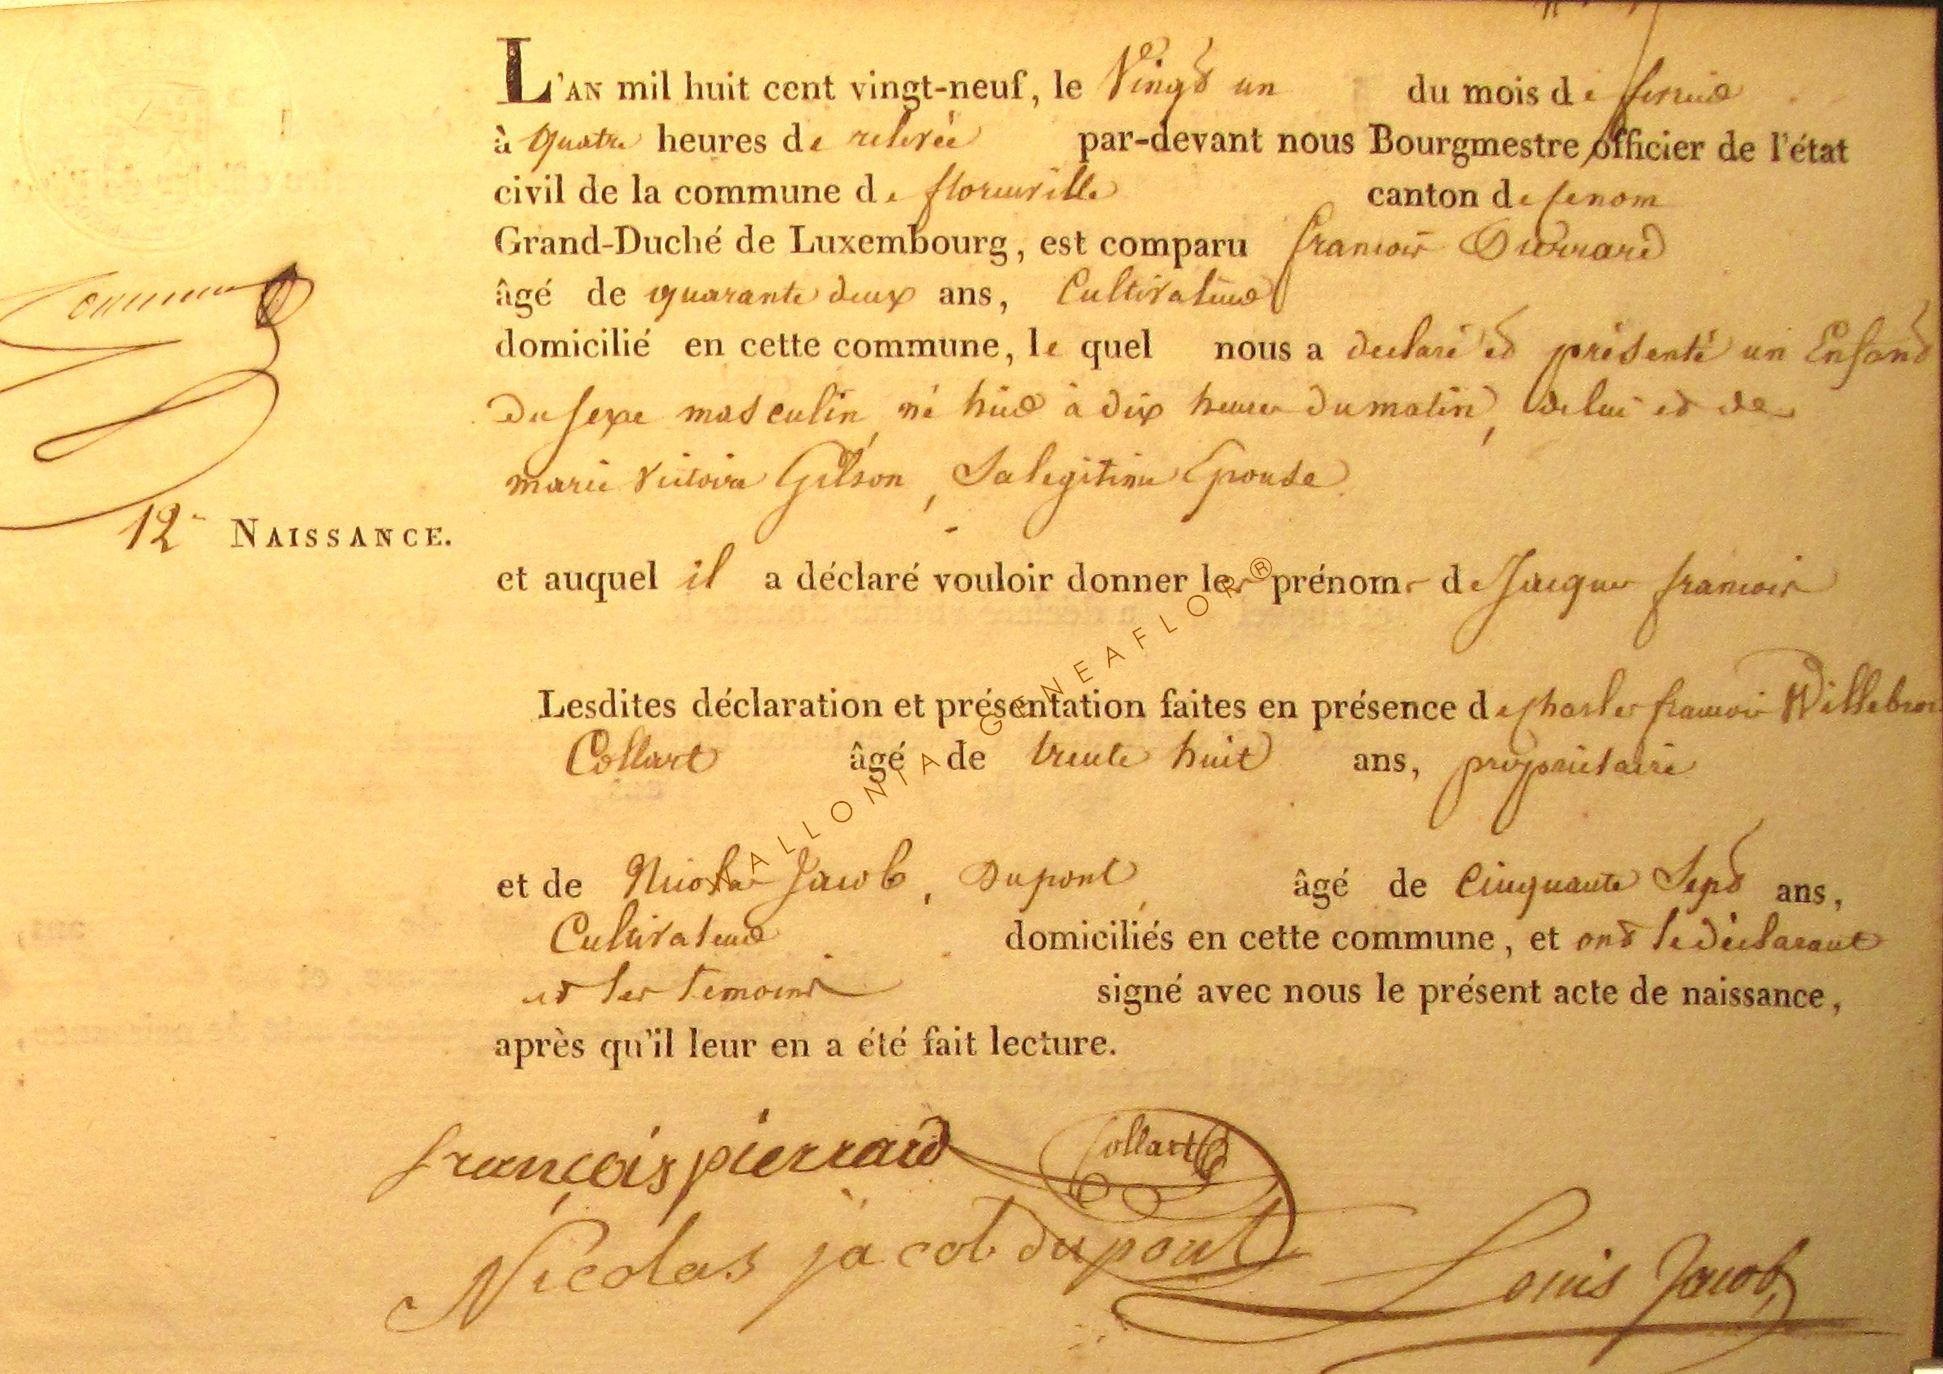 L'AN mil huit cent vingt-neuf, le Vingt un du mois de fevrier
à quatre heures de relevée par-devant nous Bourgmestre officier de l'état
civil de la commune de florenville canton de
Grand-Duché de Luxembourg, est comparu francois Pierrard
âgé de quarante deux ans, Cultivateur
domicilié en cette commune, le quel nous a declaré et présenté un Enfant
du sexe masculin, né hier à dix heures du matin, de lui et de
marie victoire Gilson, Sa legitime Epouse
12e NAISSANCE.
et auquel il a déclaré vouloir donner les prénoms de Jacques francois
Lesdites déclaration et présentation faites en présence de Charles francois
Collart âgé de trente huit ans, propriétaire
et de Nicolas Jacob, Dupont, âgé de Cinquante Sept ans,
Cultivateur domiciliés en cette commune, et ont le déclarant
et les temoins signé avec nous le présent acte de naissance,
après qu'il leur en a été fait lecture.
françois pierrard Collart
Nicolas jacob dupont Louis Jacob
WALLONIA GENEAFLOR®